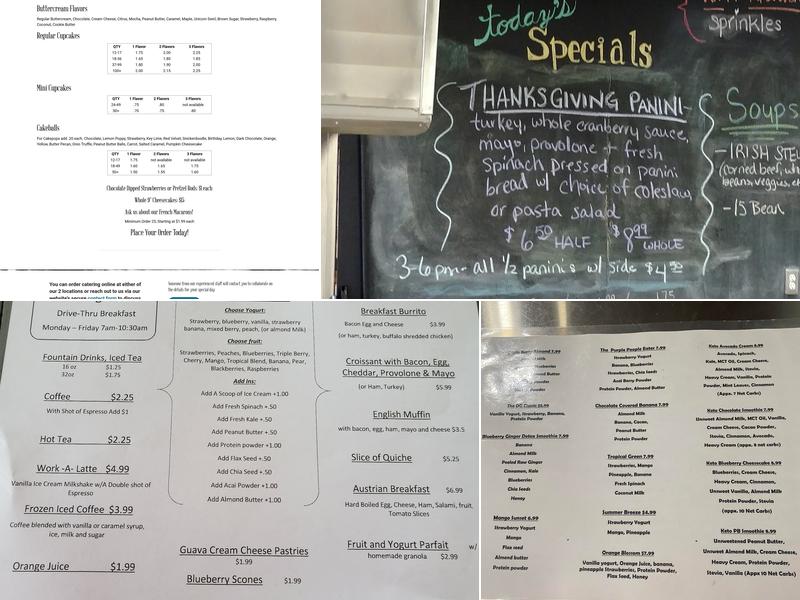 Buttercream Flavors
Regular Buttercream, Chocolate, Cream Cheese, Citrus, Mocha, Peanut Butter, Caramel, Maple, Unicorn Swirl, Brown Sugar, Strawberry, Raspberry,
Coconut, Cookie Butter
Regular Cupcakes
QTY 1 Flavor 2 Flavors 3 Flavors
12-17 1.75 2.00 2.25
18-36 1.65 1.80 1.85
37-99 1.80 1.90 2.00
100+ 2.00 2.15 2.25
Mini Cupcakes
QTY 1 Flavor 2 Flavors 3 Flavors
24-49 .75 .80 not available
50+ .70 .75 .80
Cakeballs
For Cakepops add .20 each, Chocolate, Lemon Poppy, Strawberry, Key Lime, Red Velvet, Snickerdoodle, Birthday Lemon, Dark Chocolate, Orange,
Yellow, Butter Pecan, Oreo Truffle, Peanut Butter Balls, Carrot, Salted Caramel, Pumpkin Cheesecake
QTY 1 Flavor 2 Flavors 3 Flavors
12-17 1.75 not available not available
18-49 1.60 1.65 1.75
50+ 1.50 1.55 1.60
Chocolate Dipped Strawberries or Pretzel Rods: $1 each
Whole 9" Cheesecakes $15
Ask us about our French Macarons!
Minimum Order 25, Starting at $1.99 each
Place Your Order Today!
You can order catering online at either of
our 2 locations or reach out to us via our
website's secure contact form to discuss
Someone from our experienced staff will contact you to collaborate on
the details for your special day
today's
Specials
sprinkles
THANKSGIVING PANINI-
turkey, whole cranberry sauce,
mayo, provolone + fresh
Spinach pressed on panini
bread w/ choice of coleslaw
or pasta salad
$6.50 HALF $8.99 WHOLE
3-6pm - all 1/2 panini's w/ side $4.50
Soups
- IRISH STEW
(corned beef,
beans, veggies,
- 15 Bean
Drive-Thru Breakfast
Monday – Friday 7am-10:30am
Fountain Drinks, Iced Tea
16 oz $1.25
32oz $1.75
Coffee $2.25
With Shot of Espresso Add $1
Hot Tea $2.25
Work -A- Latte $4.99
Vanilla Ice Cream Milkshake w/A Double shot of
Espresso
Frozen Iced Coffee $3.99
Coffee blended with vanilla or caramel syrup,
ice, milk and sugar
Orange Juice $1.99
Choose Yogurt:
Strawberry, blueberry, vanilla, strawberry
banana, mixed berry, peach, (or almond Milk)
Choose fruit:
Strawberries, Peaches, Blueberries, Triple Berry,
Cherry, Mango, Tropical Blend, Banana, Pear,
Blackberries, Raspberries
Add Ins:
Add A Scoop of Ice Cream +1.00
Add Fresh Spinach +.50
Add Fresh Kale +.50
Add Peanut Butter +.50
Add Protein powder +1.00
Add Flax Seed +.50
Add Chia Seed +.50
Add Acai Powder +1.00
Add Almond Butter +1.00
Guava Cream Cheese Pastries
$1.99
Blueberry Scones $1.99
Breakfast Burrito
Bacon Egg and Cheese $3.99
(or ham, turkey, buffalo shredded chicken)
Croissant with Bacon, Egg,
Cheddar, Provolone & Mayo
(or Ham, Turkey) $5.99
English Muffin
with bacon, egg, ham, mayo and cheese $3.5
Slice of Quiche $5.25
Austrian Breakfast $6.99
Hard Boiled Egg, Cheese, Ham, Salami, fruit,
Tomato Slices
Fruit and Yogurt Parfait w/
homemade granola $2.99
Almond 7.99
Milk
Almond Butter
The OG Classic $5.99
Vanilla Yogurt, Strawberry, Banana,
Protein Powder
Blueberry Ginger Detox Smoothie 7.99
Banana
Almond Milk
Peeled Raw Ginger
Cinnamon, Kale
Blueberries
Chia Seeds
Honey
Mango Sunset 6.99
Strawberry Yogurt
Mango
Flax seed
Almond butter
Protein powder
The Purple People Eater 7.99
Strawberry Yogurt
Banana, Blueberries
Strawberries, Chia Seeds
Acai Berry Powder
Protein Powder, Almond Butter
Chocolate Covered Banana 7.99
Almond Milk
Banana, Cacao,
Peanut Butter
Protein Powder
Tropical Green 7.99
Strawberries, Mango
Pineapple, Banana
Fresh Spinach
Coconut Milk
Summer Breeze $4.99
Strawberry Yogurt
Mango, Pineapple
Orange Blossom $7.99
Vanilla yogurt, Orange Juice, banana,
pineapple Strawberries, Protein Powder,
Flax Seed, Honey
Keto Avocado Cream 8.99
Avocado, Spinach,
Kale, MCT Oil, Cream Cheese,
Almond Milk, Stevia,
Heavy Cream, Vanilla, Protein
Powder, Mint Leaves, Cinnamon
(Appx. 7 Net Carbs)
Keto Chocolate Smoothie 7.99
Unsweet Almond Milk, MCT Oil, Vanilla,
Cream Cheese, Cacao Powder,
Stevia, Cinnamon, Avocado,
Heavy Cream (appx. 8 net carbs)
Keto Blueberry Cheesecake 8.99
Blueberries, Cream Cheese,
Heavy Cream, Cinnamon,
Unsweet Vanilla, Almond Milk
Protein Powder, Stevia
(appx. 10 Net Carbs)
Keto PB Smoothie 8.99
Unsweetened Peanut Butter,
Unsweet Almond Milk, Cream Cheese,
Heavy Cream, Protein Powder,
Stevia, Vanilla (Appx 10 Net Carbs)